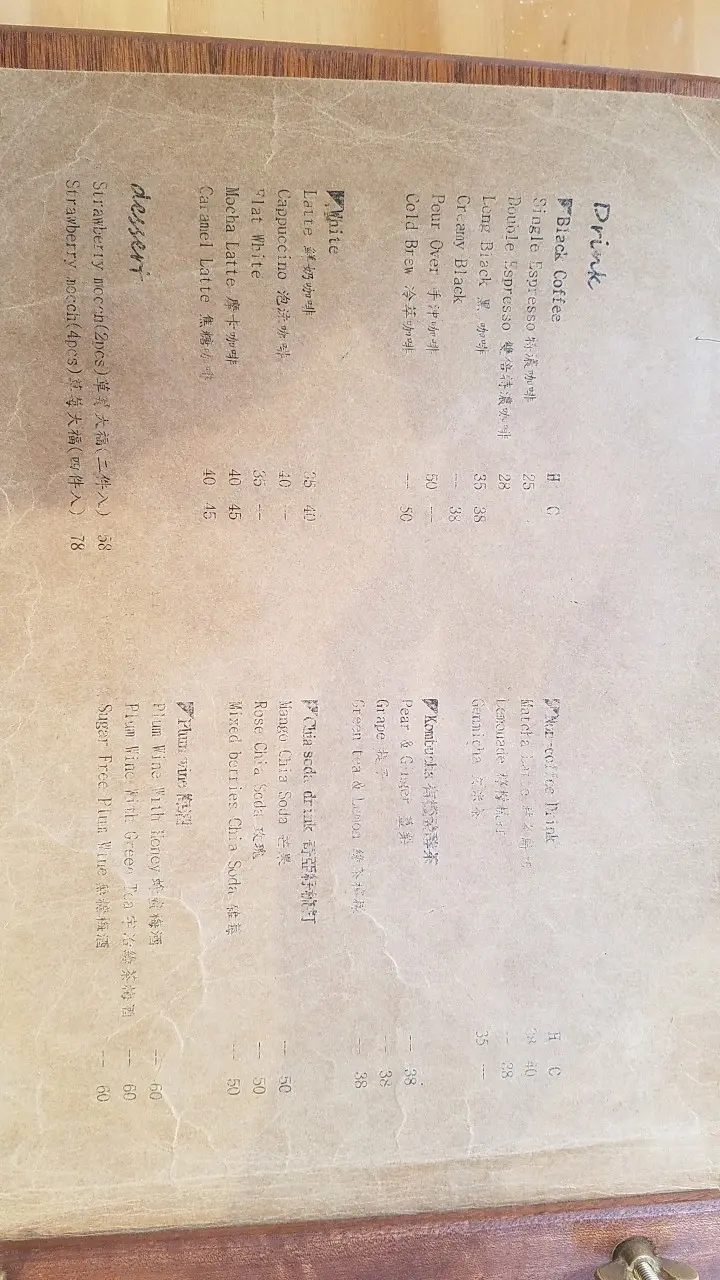 Drink
Black Coffee H C
Single Espresso 特濃咖啡 25
Double Espresso 雙倍特濃咖啡 28
Long Black 黑 咖啡 35 38
Creamy Black -- 38
Pour Over 手沖咖啡 50 --
Cold Brew 冷萃咖啡 -- 50
White
Latte 鮮奶咖啡 35 40
Cappuccino 泡沫咖啡 40 --
Flat White 35 --
Mocha Latte 摩卡咖啡 40 45
Caramel Latte 焦糖咖啡 40 45
dessert
Strawberry mocch(2pcs)草莓大福(二件入) 58
Strawberry mocch(4pcs)草莓大福(四件入) 78
Non-coffee Drink H C
Matcha Latte 38 40
Lemonade -- 38
Genmicha 玄米茶 35 --
Kombucha
Pear & Ginger -- 38
Grape 提子 -- 38
Green tea & Lemon 綠茶檸檬 -- 38
Chia soda drink
Mango Chia Soda 芒果 -- 50
Rose Chia Soda 玫瑰 -- 50
Mixed berries Chia Soda 雜莓 -- 50
Plum wine 梅酒
Plum Wine With Honey 蜂蜜梅酒 -- 60
Plum Wine With Green Tea 宇治綠茶梅酒 -- 60
Sugar Free Plum Wine 無糖梅酒 -- 60